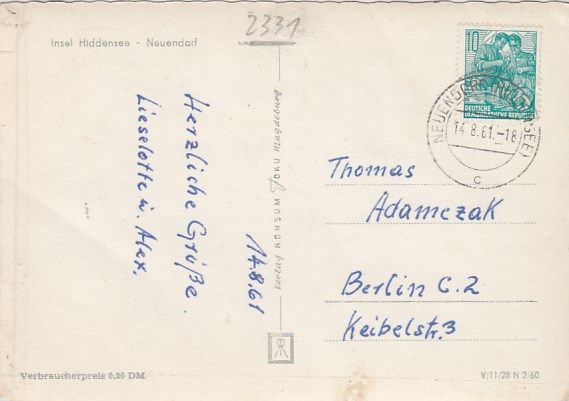 2331
Insel Hiddensee - Neuendorf
Herzliche Grüße.
Lieselotte u. Alex.
14.8.61
Verlag KONSUM FOKU Magdeburg
10
DEUTSCHE
DEMOKRATISCHE REPUBLIK
NEUENDORF (HIDDENSEE)
14.8.61.-18
c
Thomas
Adamczak
Berlin C.2
Keibelstr.3
Verbraucherpreis 0,20 DM
V/11/28 N 2/60